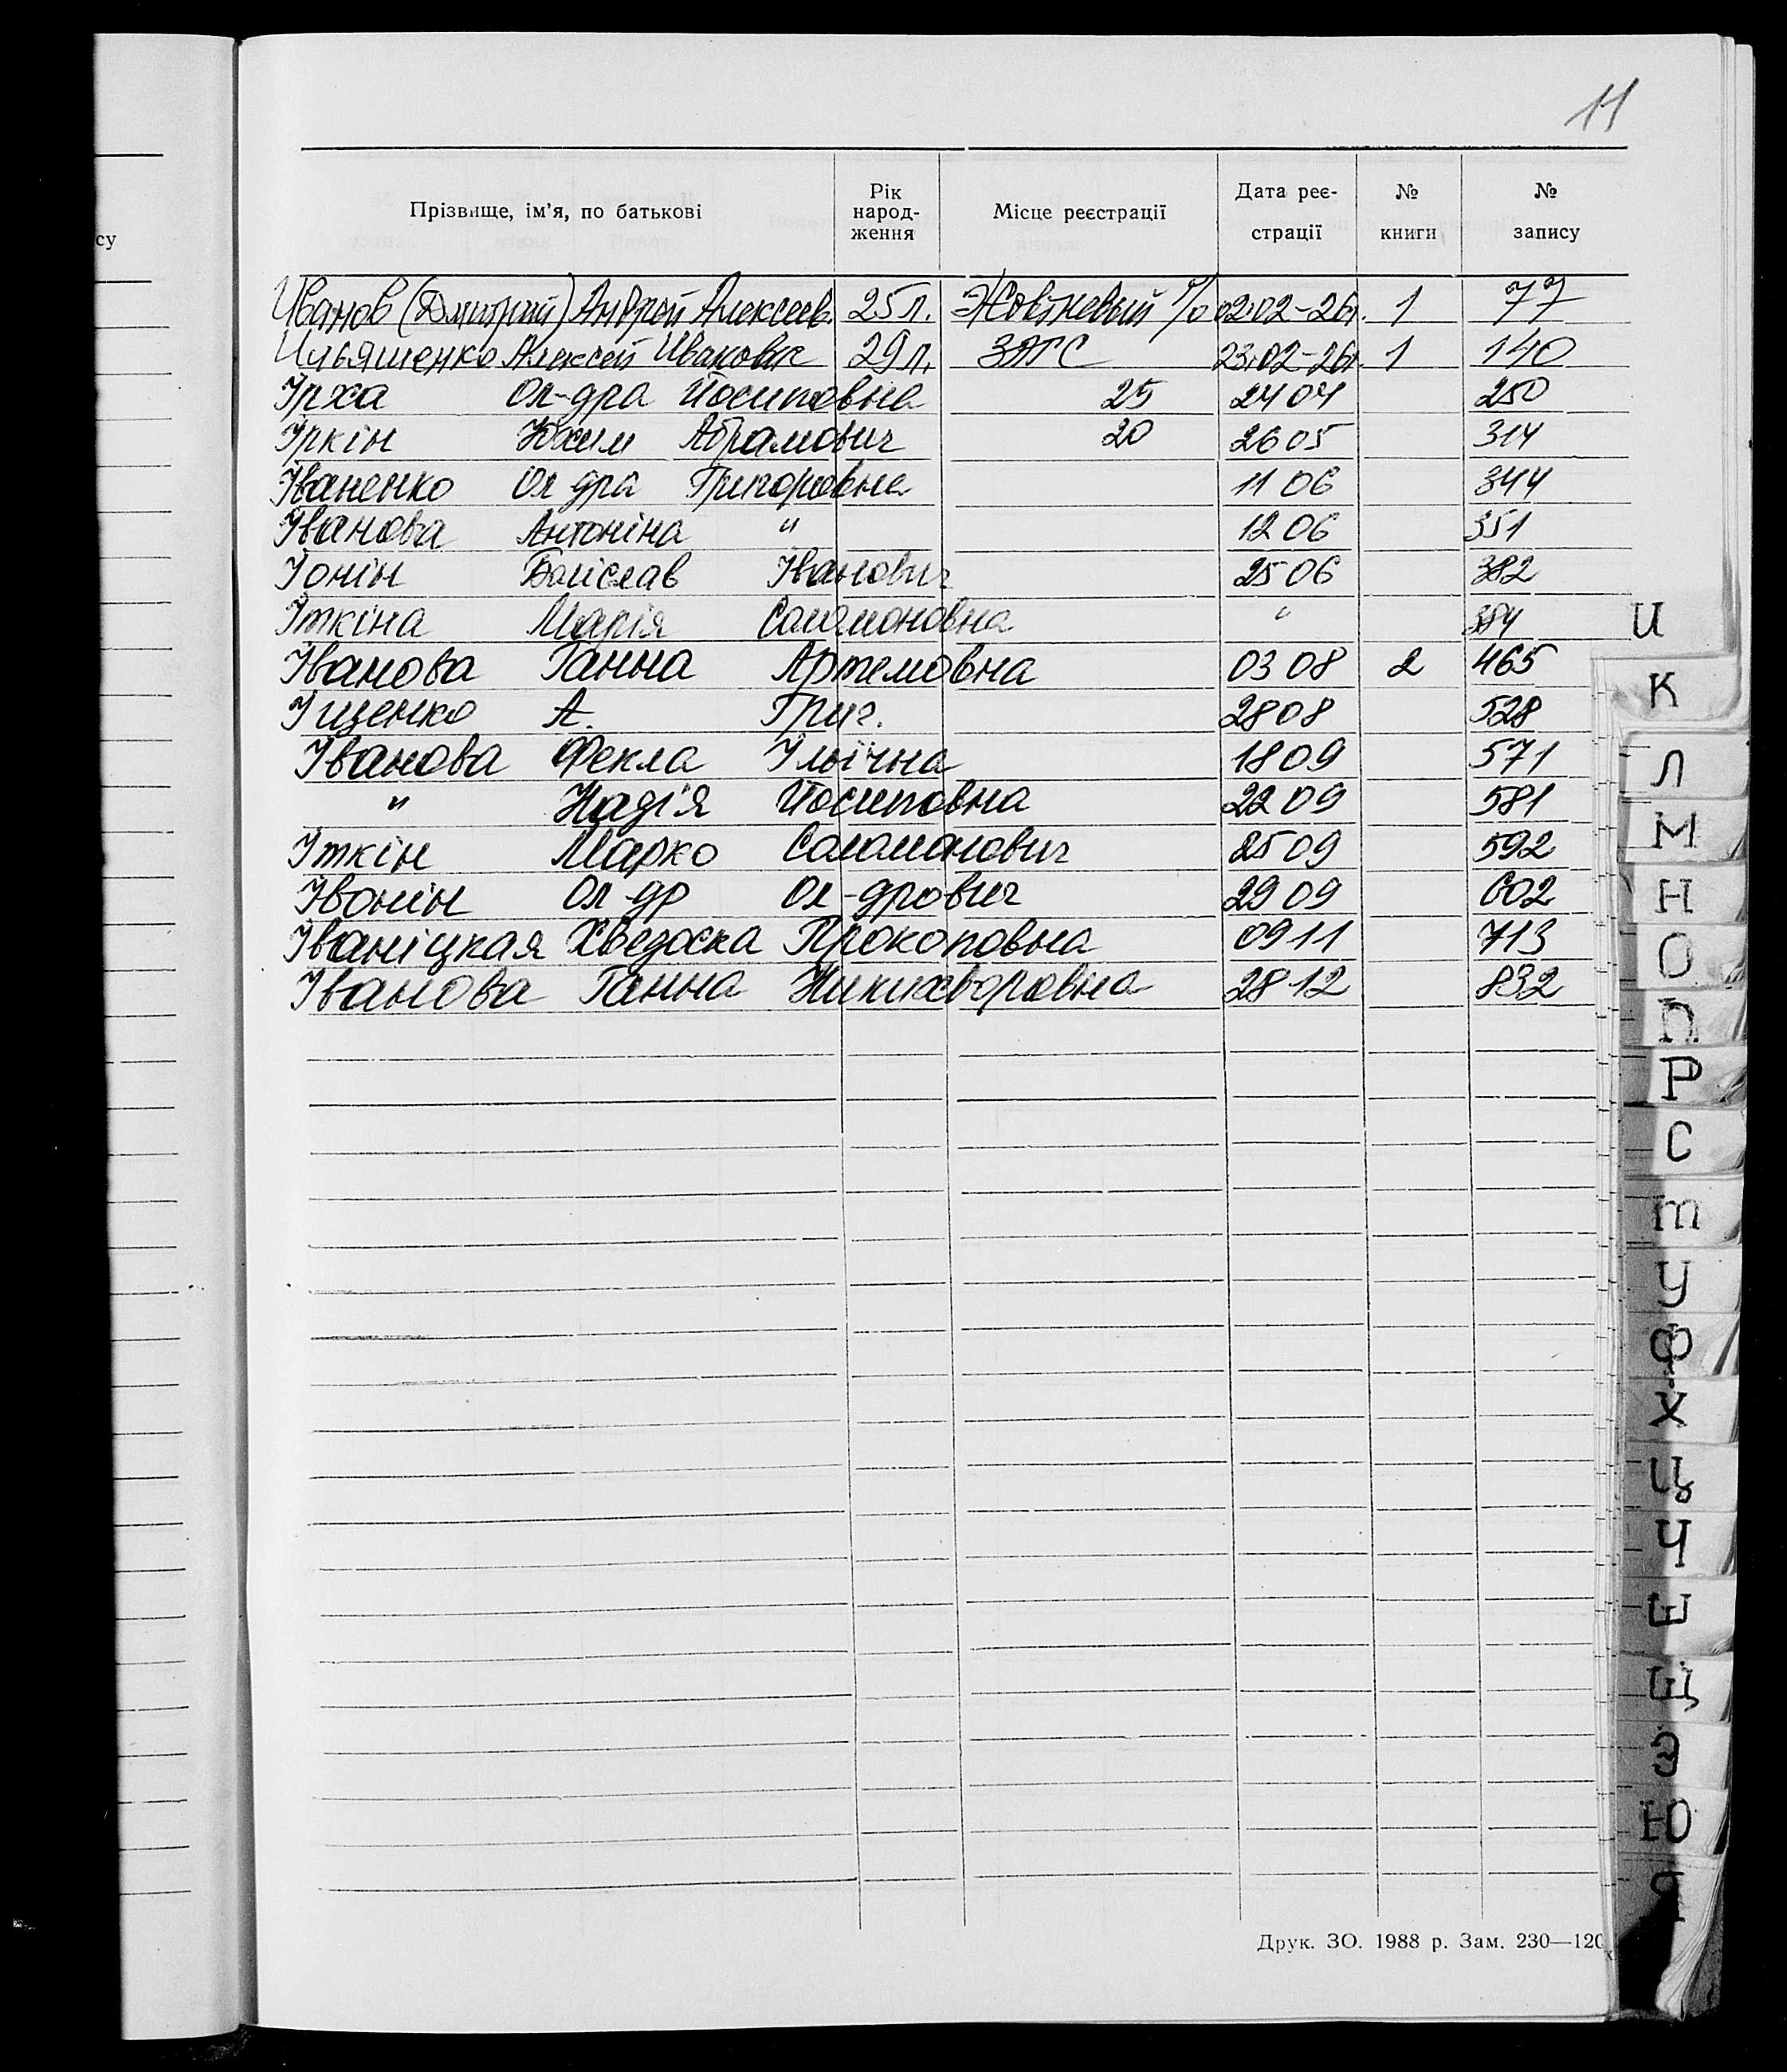 11
су
Прізвище, ім'я, по батькові Рік народ- ження Місце реєстрації Дата реє- страції № книги № запису
Иванов (Дмитрий) Андрей Алексеев. 25 л. Жовтневый р/о 02.02-26г. 1 77
Ильяшенко Алексей Иванович 29 л. ЗАГС 23.02-26г. 1 140
Ірха Ол-дра Йосиповна 25 24 04 250
Іркін Юхим Абрамович 20 26 05 314
Іваненко Ол дра Григоровна 11 06 344
Іванова Антоніна " 12 06 351
Іонін Іванович 25 06 382
Іткіна Марія Соломоновна " 384
Іванова Ганна Артемовна 03 08 2 465
Іщенко А. Григ. 28 08 528
Іванова Фекла Ільїчна 18 09 571
" Надія Йосиповна 22 09 581
Іткін Марко Соломонович 25 09 592
Івонін Ол-др Ол-дрович 29 09 602
Іваніцкая Хведоска Прокоповна 09 11 713
Іванова Ганна Никихворовна 28 12 832
И
К
Л
М
Н
О
П
Р
С
т
У
Ф
Х
Ц
Ч
Ш
Щ
Э
Ю
Я
Друк. ЗО. 1988 р. Зам. 230—120